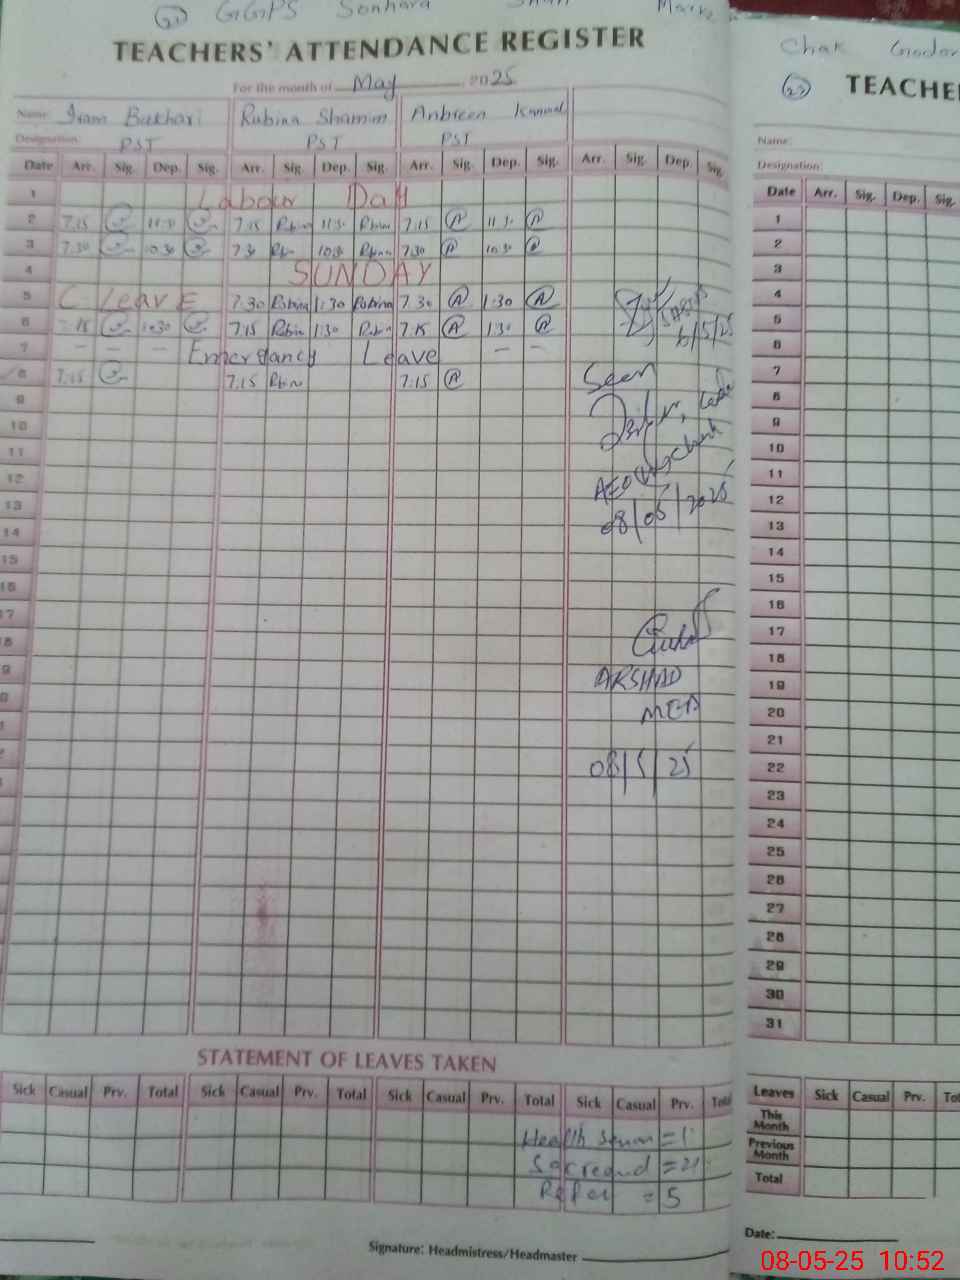 23 GGPS Sonhara Shah Marka
TEACHERS' ATTENDANCE REGISTER
For the month of May 2025
Name: Iram Bukhari Rubina Shamim Anbreen Kanwal
Designation: PST PST PST
Date Arr. Sig. Dep. Sig. Arr. Sig. Dep. Sig. Arr. Sig. Dep. Sig. Arr. Sig. Dep. Sig.
1 Labour Day
2 7.15 11:30 7:15 Rubina 11:30 Rubina 7:15 A 11:30 A
3 7.30 10:30 7:30 Rubina 10:30 Rubina 7:30 A 10:30 A
4 SUNDAY
5 C Leave 7:30 Rubina 1:30 Rubina 7:30 A 1:30 A
6 7:15 1:30 7:15 Rubina 1:30 Rubina 7:15 A 1:30 A
6/5/25
7 — — — Emergancy Leave — —
8 7:15 7:15 7:15 A
Seen
9
10
11
12
AEO
13
08/05/2025
14
15
16
17
18
19
ARSHAD
20
MEA
21
22
08/5/25
23
STATEMENT OF LEAVES TAKEN
Sick Casual Prv. Total Sick Casual Prv. Total Sick Casual Prv. Total Sick Casual Prv. Total
Health = 1
= 21
= 5
Signature: Headmistress/Headmaster
Chak
23 TEACHE
Name:
Designation:
Date Arr. Sig. Dep. Sig.
1
2
3
4
5
6
7
8
9
10
11
12
13
14
15
16
17
18
19
20
21
22
23
24
25
26
27
28
29
30
31
Leaves Sick Casual Prv. Tot
This Month
Previous Month
Total
Date:
08-05-25 10:52